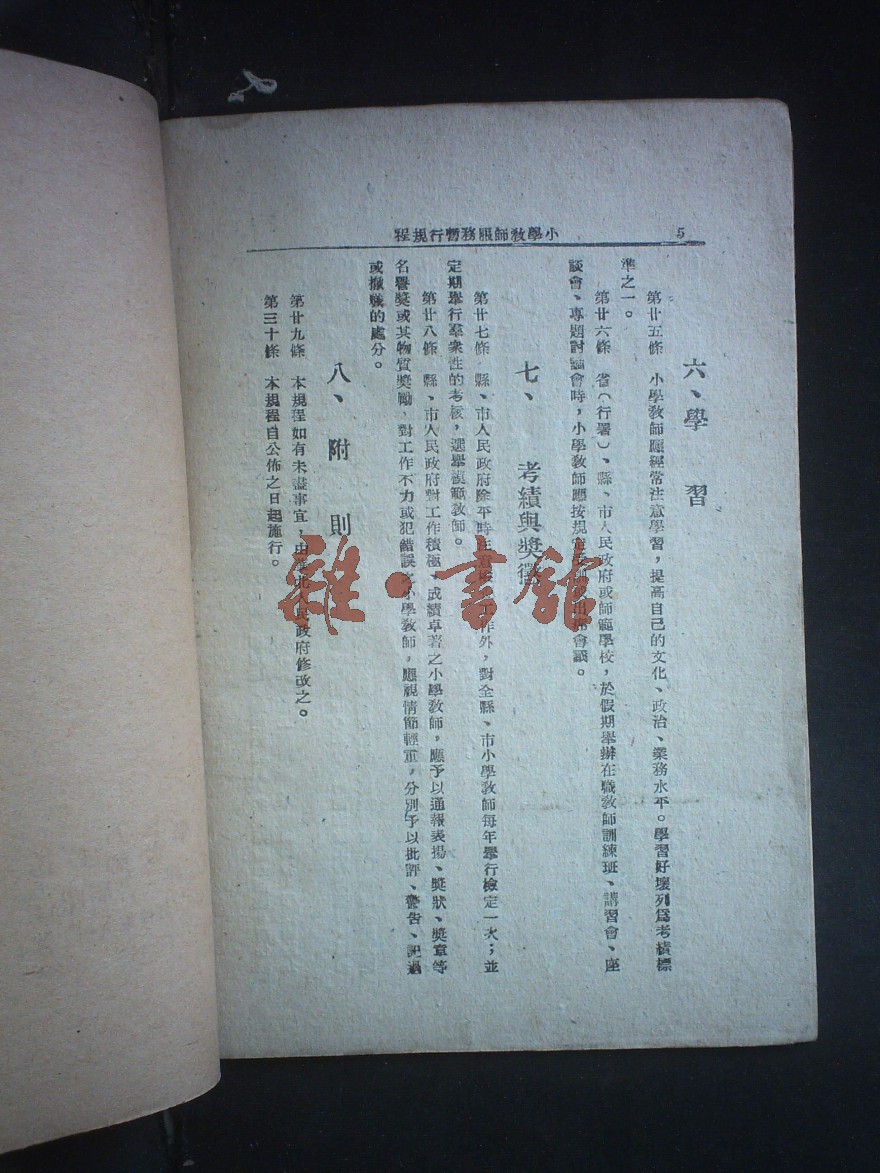 小學教師服務暫行規程
5
六、學習
第廿五條 小學教師應經常注意學習，提高自己的文化、政治、業務水平。學習好壞列為考績標
準之一。
第廿六條 省（行署）、縣、市人民政府或師範學校，於假期舉辦在職教師訓練班、講習會、座
談會、專題討論會時，小學教師應按規定受訓或出席會議。
七、考績與獎懲
第廿七條 縣、市人民政府除平時注意 工作外，對全縣、市小學教師每年舉行檢定一次；並
定期舉行羣衆性的考核，選舉模範教師。
第廿八條 縣、市人民政府對工作積極、成績卓著之小學教師，應予以通報表揚、獎狀、獎章等
名譽獎或其物質獎勵，對工作不力或犯錯誤之小學教師，應視情節輕重，分別予以批評、警告、記過
或撤職的處分。
八、附則
第廿九條 本規程如有未盡事宜，由華北人民政府修改之。
第三十條 本規程自公佈之日起施行。
雜·書館